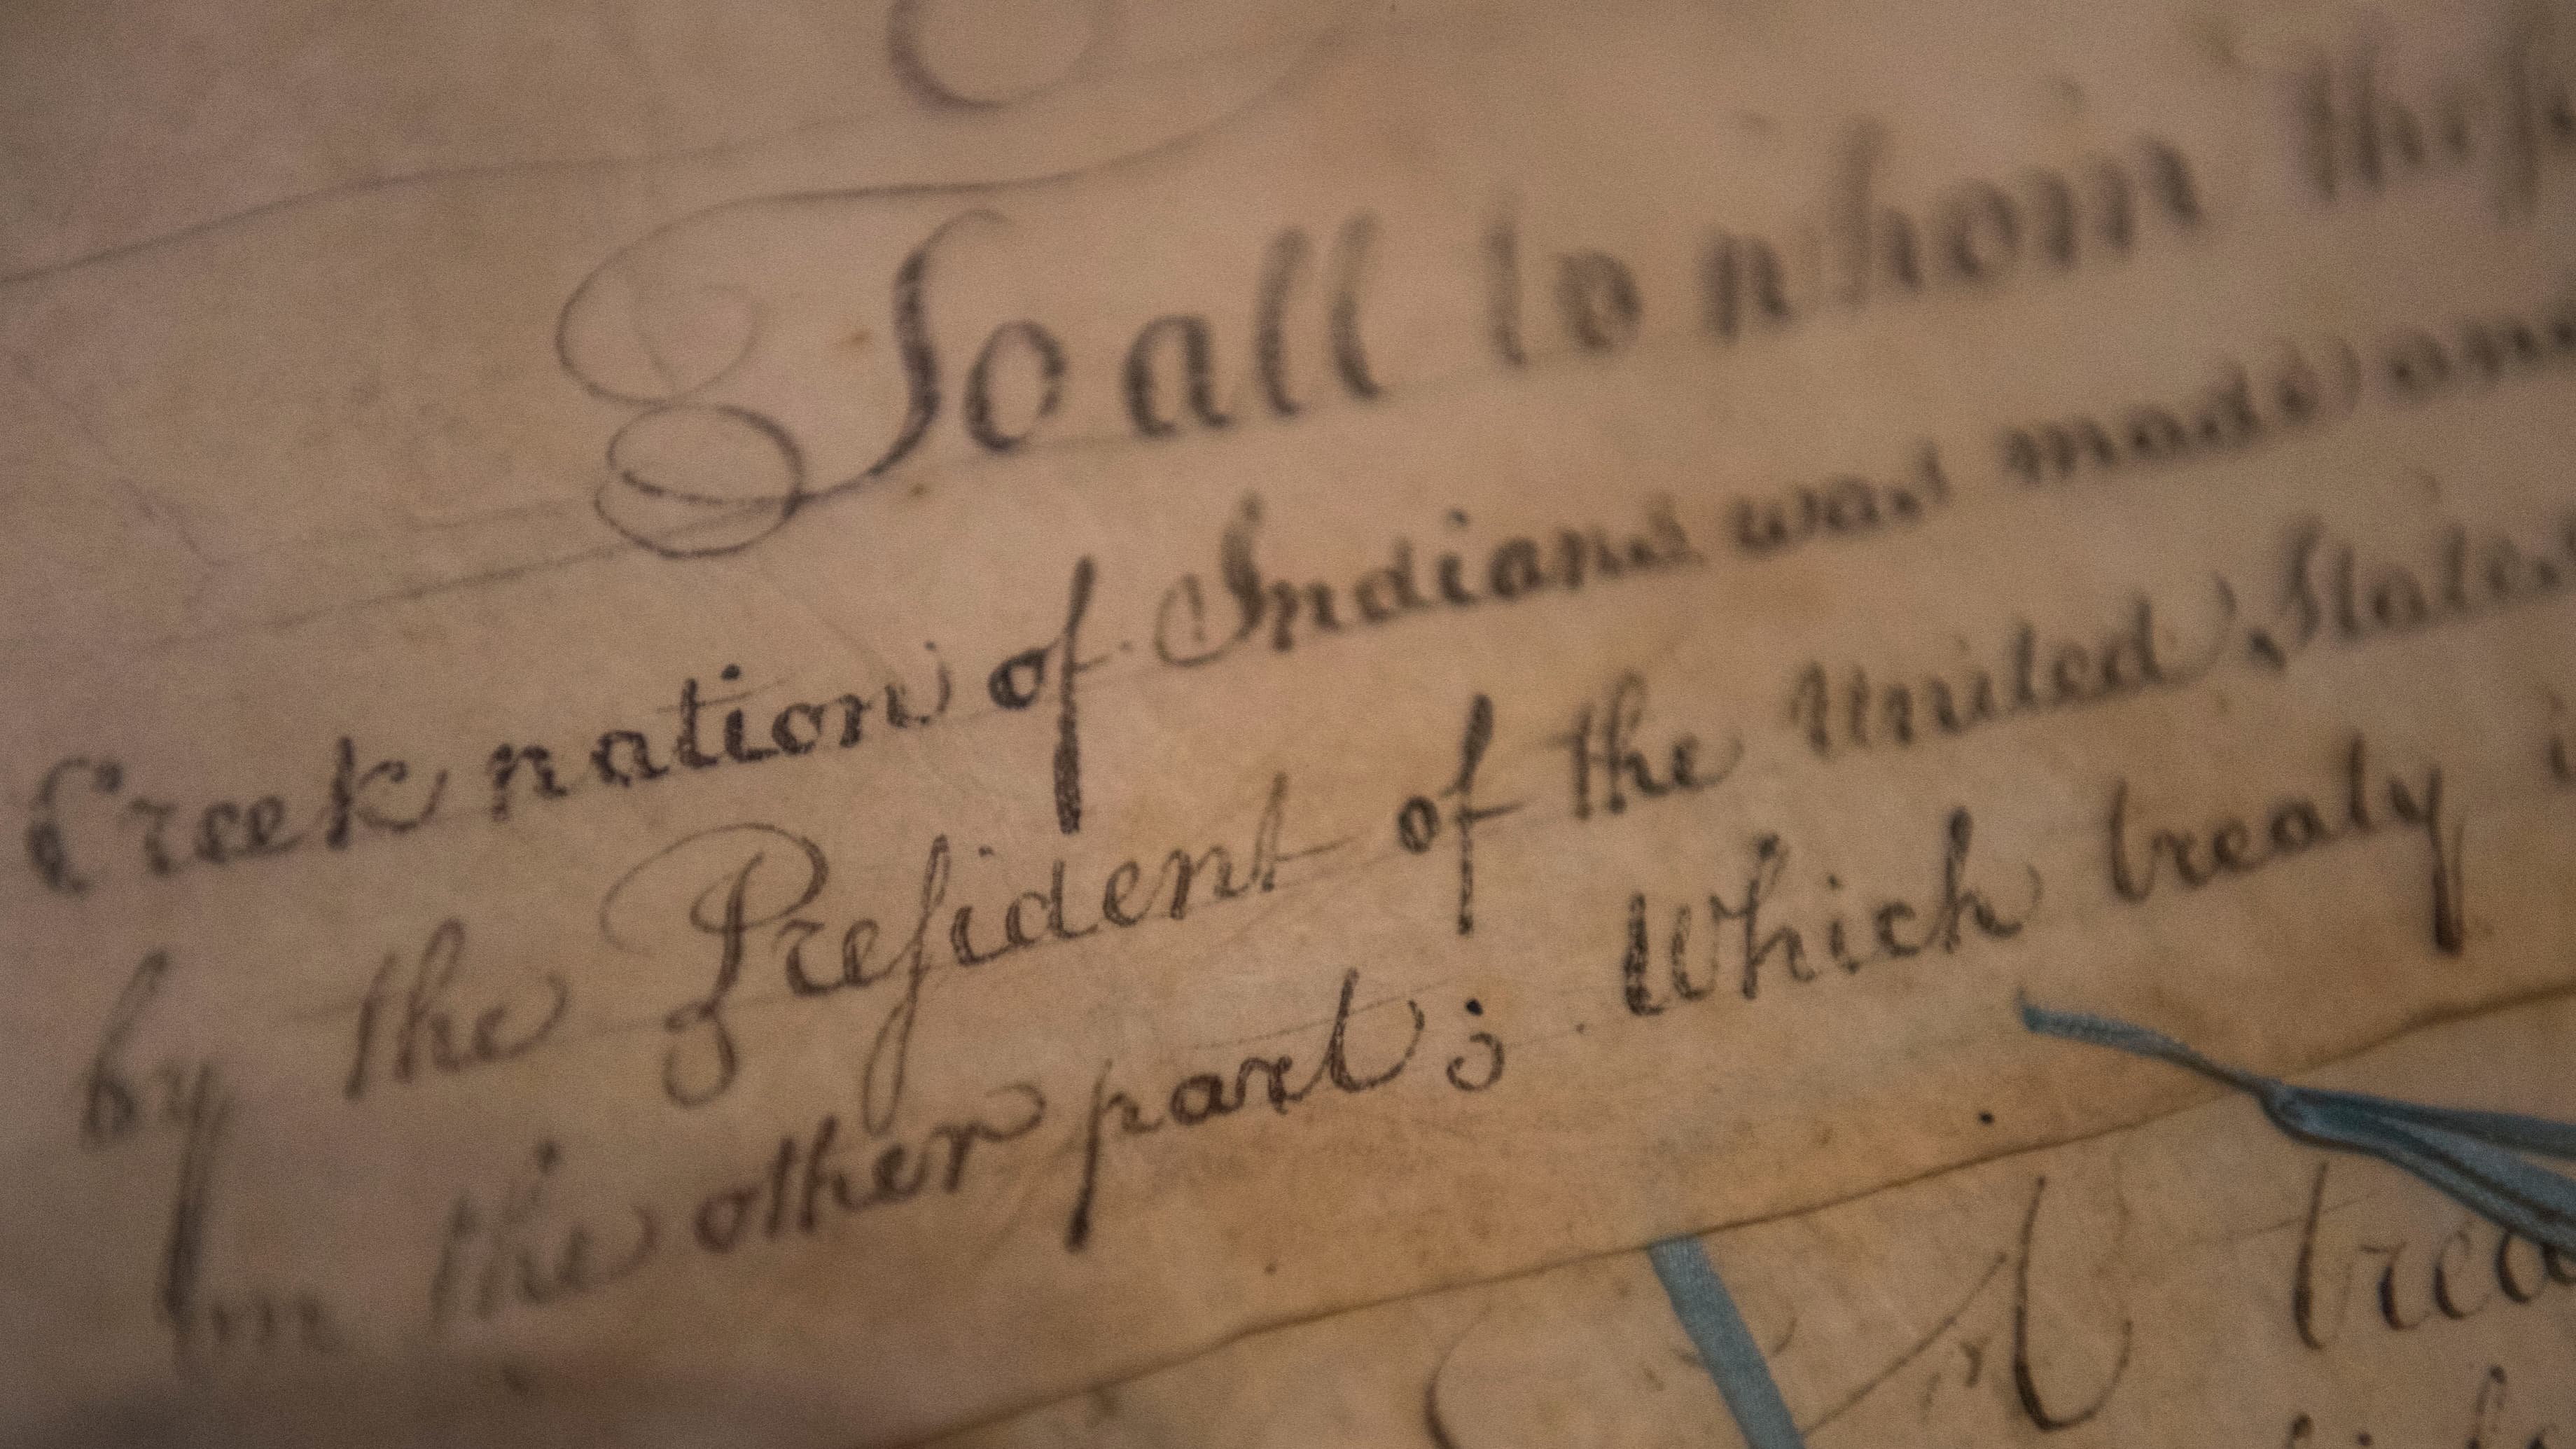 To all to whom theſe
Creek nation of Indians was made and
by the Preſident of the United States
on the other part; Which treaty